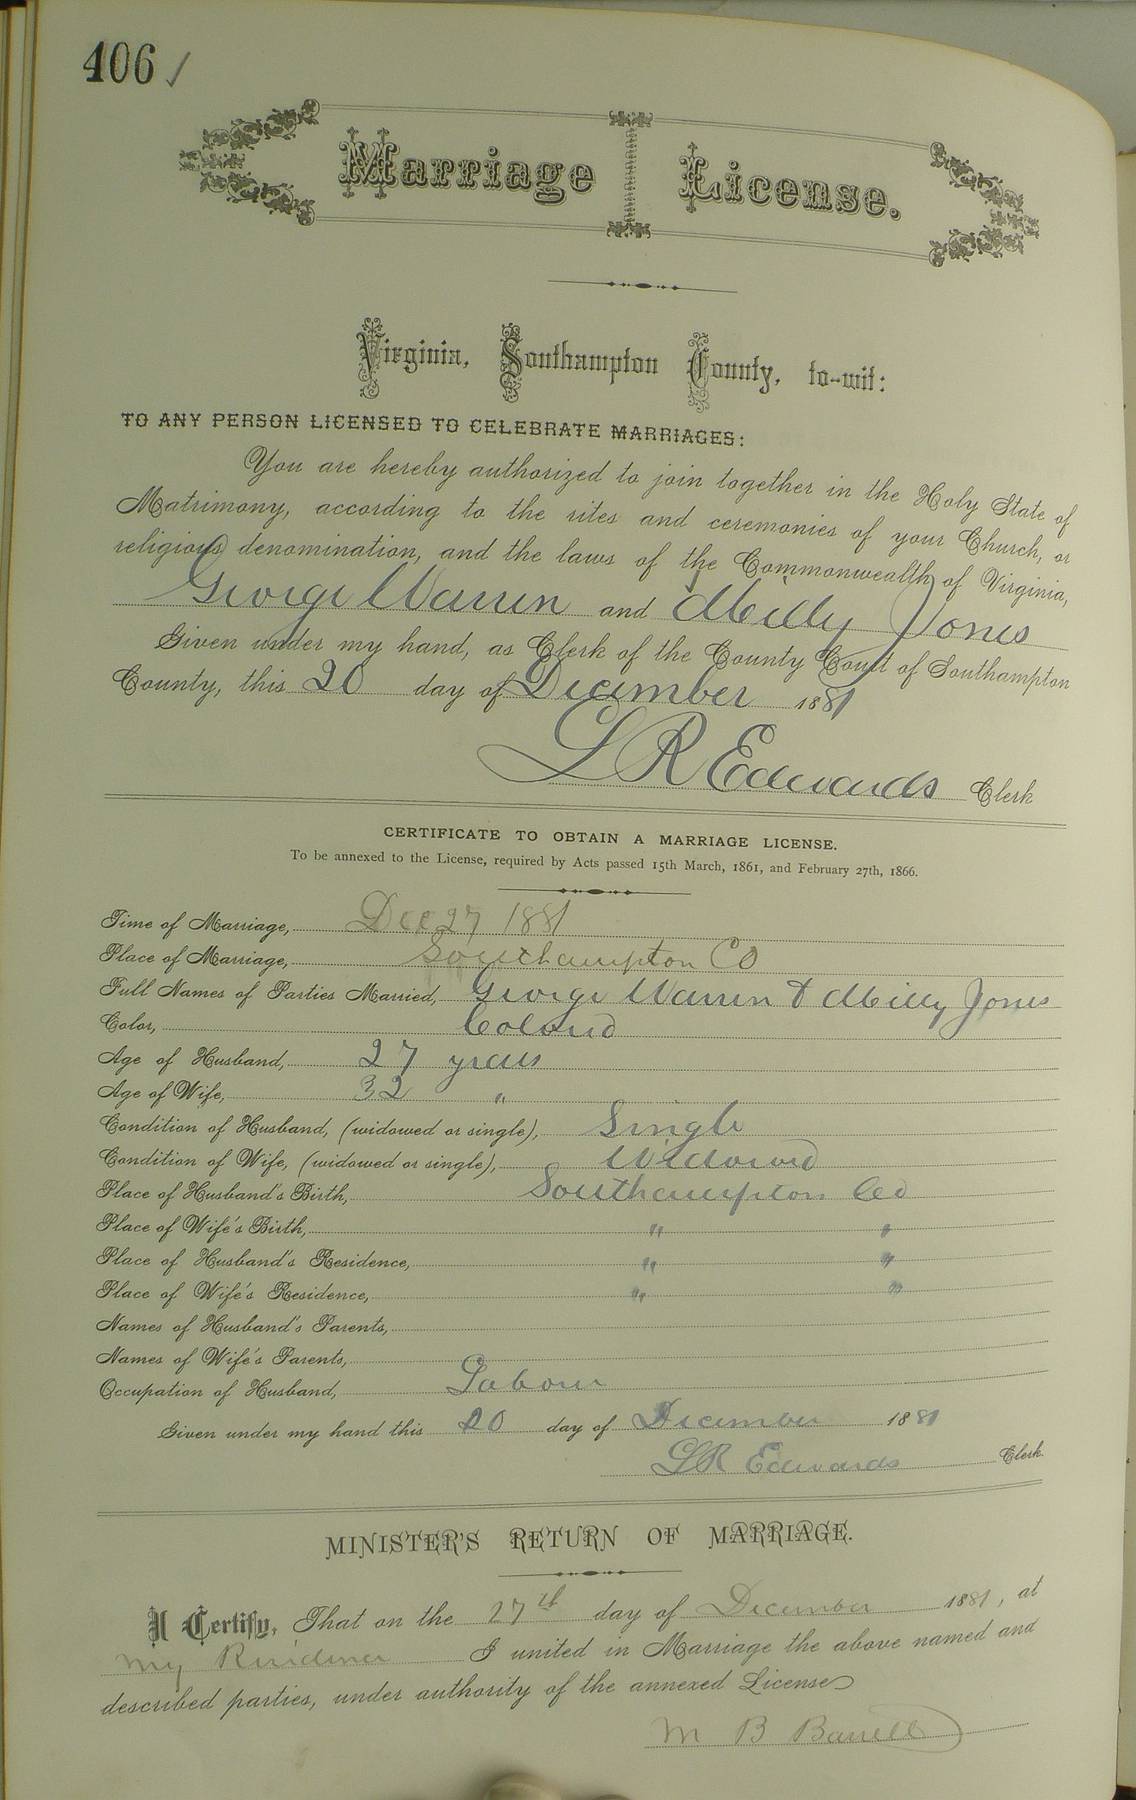 406 ✓
Marriage License.
Virginia, Southampton County, to-wit:
TO ANY PERSON LICENSED TO CELEBRATE MARRIAGES:
You are hereby authorized to join together in the Holy State of
Matrimony, according to the rites and ceremonies of your Church, or
religious denomination, and the laws of the Commonwealth of Virginia,
George Warren and Milly Jones
Given under my hand, as Clerk of the County Court of Southampton
County, this 20 day of December 1881
L R Edwards Clerk
CERTIFICATE TO OBTAIN A MARRIAGE LICENSE.
To be annexed to the License, required by Acts passed 15th March, 1861, and February 27th, 1866.
Time of Marriage, Dec 27 1881
Place of Marriage, Southampton Co
Full Names of Parties Married, George Warren & Milly Jones
Color, Colored
Age of Husband, 27 years
Age of Wife, 32 "
Condition of Husband, (widowed or single), Single
Condition of Wife, (widowed or single), Widowed
Place of Husband's Birth, Southampton Co
Place of Wife's Birth, " "
Place of Husband's Residence, " "
Place of Wife's Residence, " "
Names of Husband's Parents,
Names of Wife's Parents,
Occupation of Husband, Labour
Given under my hand this 20 day of December 1881
L R Edwards Clerk
MINISTER'S RETURN OF MARRIAGE.
I Certify, That on the 27th day of December 1881, at
my Residence I united in Marriage the above named and
described parties, under authority of the annexed License
M B Barrett